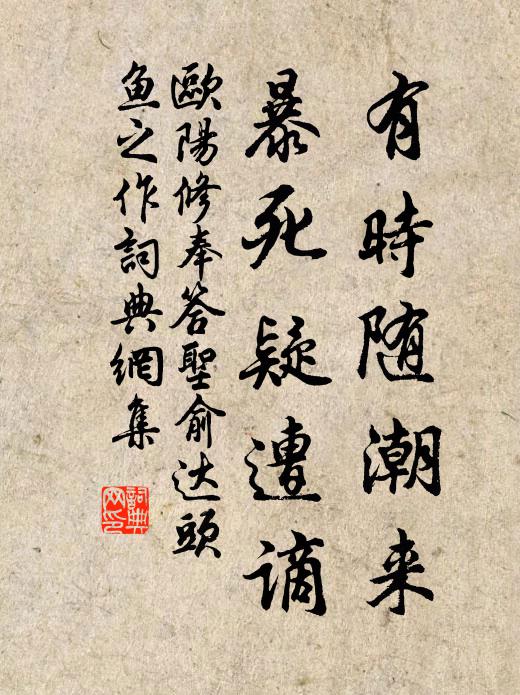 有時随潮来
暴死疑遭謫
歐陽修奉答聖俞达頭
魚之作詞典網集
詞典網印